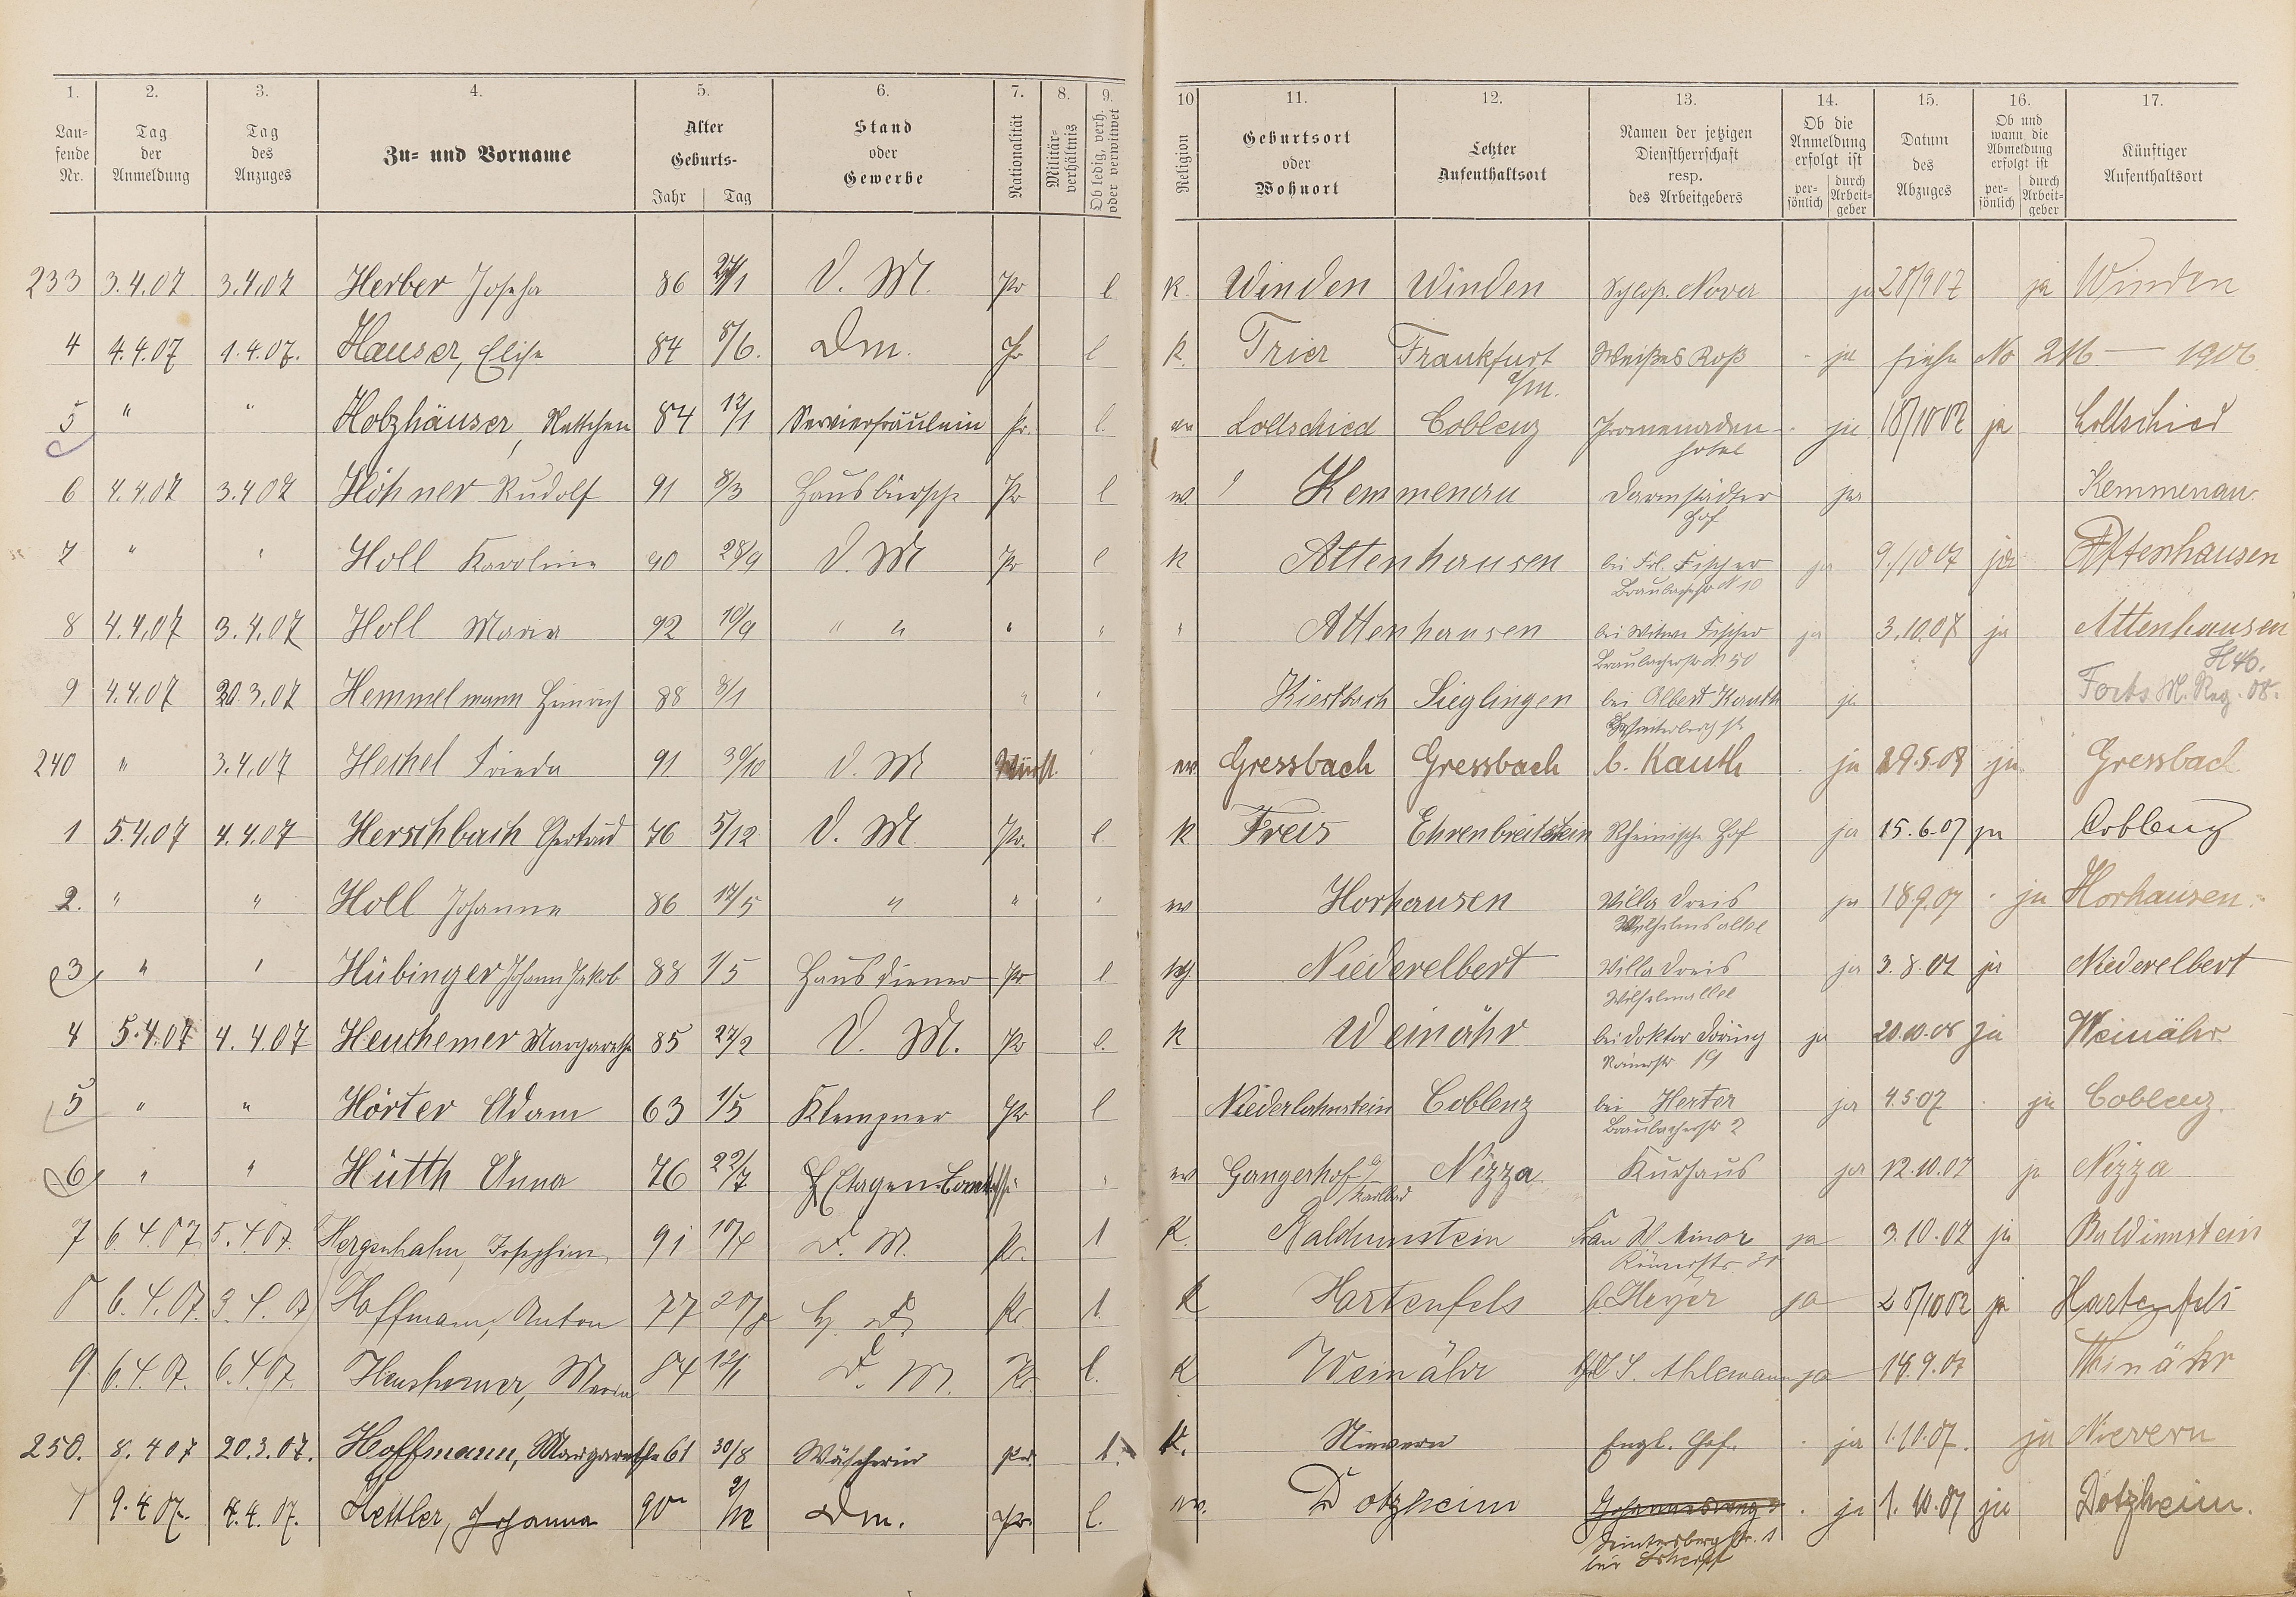 1. 2. 3. 4. 5. 6. 7. 8. 9. 10 11. 12. 13. 14. 15. 16. 17.
Lau-
fende
Nr.
Tag
der
Anmeldung
Tag
des
Anzuges
Zu- und Vorname
Alter
Geburts-
Jahr Tag
Stand
oder
Gewerbe
Nationalität
Militär-
verhältnis
Ob ledig, verh.
oder verwitwet
Religion
Geburtsort
oder
Wohnort
Letzter
Aufenthaltsort
Namen der jetzigen
Dienstherrschaft
resp.
des Arbeitgebers
Ob die
Anmeldung
erfolgt ist
per-
sönlich
durch
Arbeit-
geber
Datum
des
Abzuges
Ob und
wann die
Abmeldung
erfolgt ist
per-
sönlich
durch
Arbeit-
geber
Künftiger
Aufenthaltsort
233 3.4.07 3.4.07 Herber Josefa 86 D. M. Pr l. K. Winden Winden Schloß. Nover ja 28/9 07 ja Winden
4 4.4.07 1.4.07. Hauser, Elise 84 8/6. Dm. Pr l K. Trier Frankfurt a/m. Weißes Roß - ja siehe No 216 — 1906
5 " " Holzhäuser, Nettchen 84 12/1 Servierfräulein Pr. l. ev Lollschied Coblenz Promenaden-
hotel ja 18/10 07 ja Lollschied
6 4.4.07 3.4 07 Höhner Rudolf 91 8/3 Hausbursche Pr l ev Kemmenau Darmstädter
Hof ja Kemmenau
7 " " Holl Karoline 90 28/9 D. M Pr l K Attenhausen bei Frl. Fischer
Braubacherstr No 10 ja 9./10 07 ja Attenhausen
8 4.4.07 3.4.07 Holl Maria 92 10/9 " " " " " Attenhausen bei Witwe Fischer
Braubacherstr No 50 ja 3.10.07 ja Attenhausen
9 4.4.07 20.3.07 Hemmelmann Heinrich 88 3/1 " " Sieglingen bei Albert Kauth ja Forts M. Reg. 08.
240 " 3.4.07 Heckel Frieda 91 30/10 D. M Württ. " ev Gressbach Gressbach b. Kauth ja 29.5.08 ja Gressbach
1 5.4.07 4.4.07 Herschbach Gertrud 76 5/12 D. M. Pr. l. K Freis Ehrenbreitstein Rheinische Hof ja 15.6.07 ja Coblenz
2. " " Holl Johanna 86 14/5 " " " ev Horhausen Villa Dreis
Wilhelmsallee ja 18.9.07 ja Horhausen
3 " " Hübinger Johann Jakob 88 1/5 Hausdiener Pr l Niederelbert Villa Dreis
Wilhelmallee ja 3.8.07 ja Niederelbert
4 5.4.07 4.4.07 Heuchemer Margarethe 85 27/2 D. M. Pr l. K Weinähr bei Doktor Döring
Römerstr 19 ja 20.10.08 ja Weinähr
5 " " Hörter Adam 63 1/5 Klempner Pr l Niederlahnstein Coblenz bei Herter
Braubacherstr 2 ja 4.5.07 ja Coblenz.
6 " " Hütth Anna 76 22/7 " ev Gangerhof b/
Karlbad Nizza. Kurhaus ja 12.10.07 ja Nizza
7 6.4.07 5.4.07. Hergenhahn, Josephine 91 10/4 D. M. Pr. l K. Balduinstein Frau W Minor
Römerstr. 31 ja 3.10.07 ja Balduinstein
8 6.4.07. 3.4.07 Hoffmann, Anton 77 H. D. Pr l. K Hartenfels b. Heyer ja 28/10 07 ja Hartenfels
9 6.4.07. 6.4.07. Heuchemer, Maria 84 12/1 D. M. Pr. l. K Weinähr S. Ahlemann ja 14.9.07 Weinähr
250. 8.4 07 20.3.07. Hoffmann, Margarethe 61 30/8 Wäscherin Pr. l. K. Nievern Engl. Hof. - ja 1.10.07. ja Nievern
1 9.4 07. 4.4.07. Kettler, Johanna 90 2/12 Dm. Pr. l. ev. Dotzheim
Wintersbergstr. 1 - ja 1.10.07 ja Dotzheim.